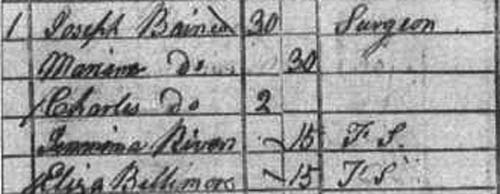 1 Joseph Baines 30 Surgeon
Mariam do 30
Charles do 2
Jemima Rivers 15 F. S.
Eliza Bellimore 15 F. S.